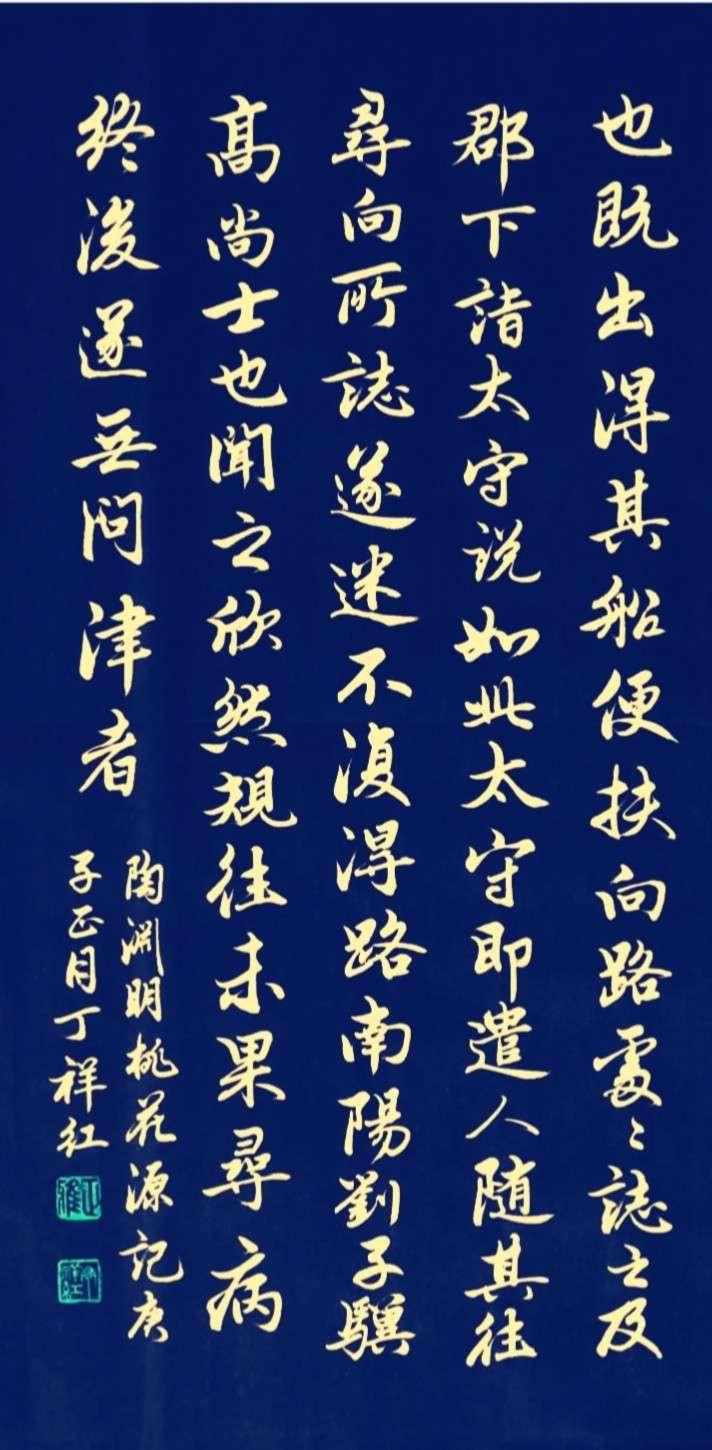 也既出得其船便扶向路處〻誌之及
郡下詣太守說如此太守即遣人随其往
尋向所誌遂迷不復得路南陽劉子驥
高尚士也聞之欣然規往未果尋病
終後遂無問津者
陶淵明桃花源記庚
子正月丁祥红